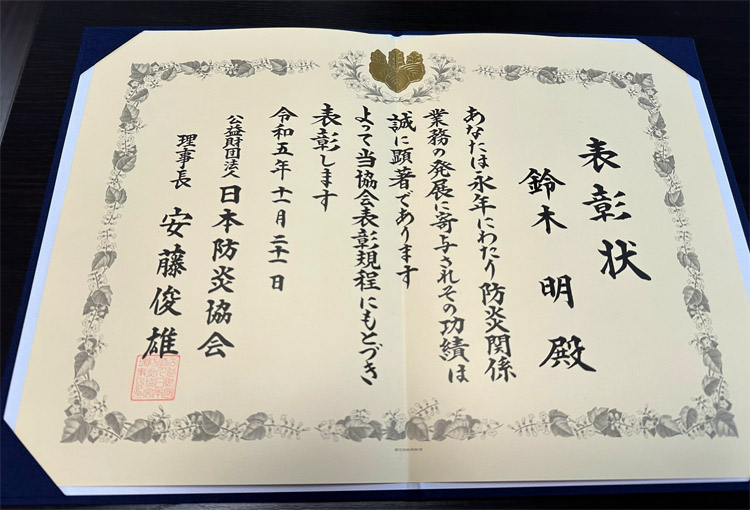 表彰状
鈴木 明 殿
あなたは永年にわたり防炎関係
業務の発展に寄与されその功績は
誠に顕著であります
よって当協会表彰規程にもとづき
表彰します
令和五年十一月二十一日
公益財団法人 日本防炎協会
理事長 安藤俊雄